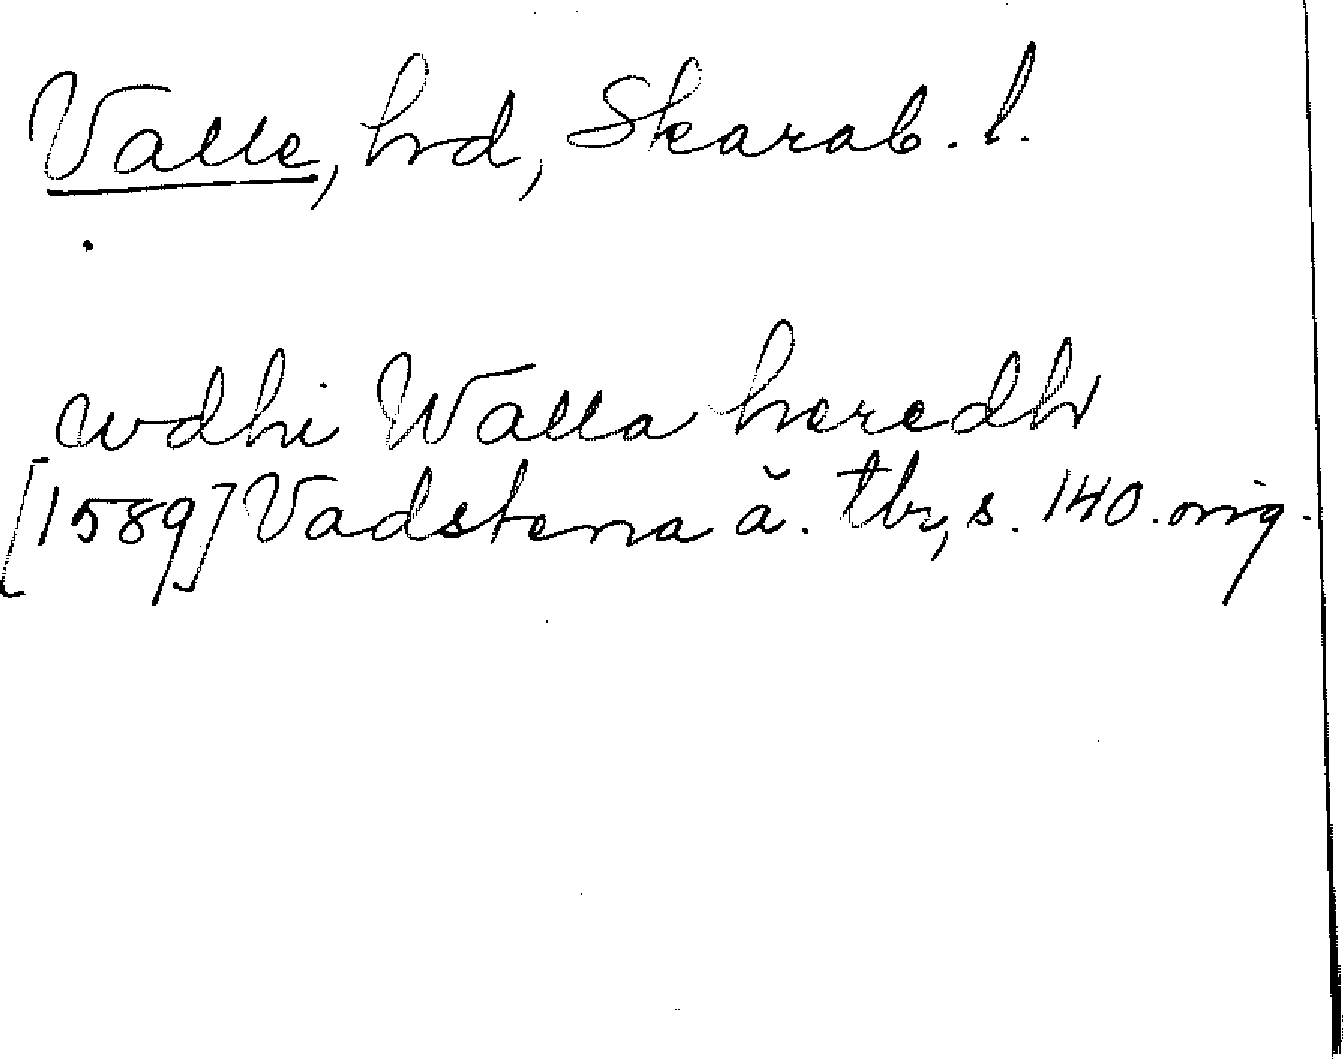 Valle, hd, Skarab. l.
wdhi Walla heredh
[1589] Vadstena ä. tb, s. 140. orig.